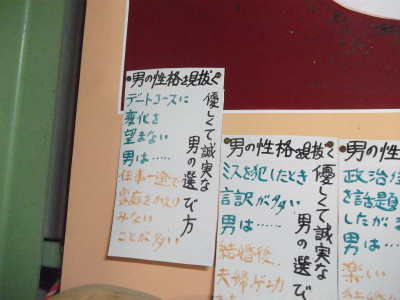 ・男の性格を見抜く・
優しくて誠実な
男の選び方
デートコースに
変化を
望まない
男は……
仕事一途で
家庭をかえり
みない
ことが多い
・男の性格を見抜く・
優しくて誠実な
男の選び
ミスを犯したとき
言訳が多い
男は……
結婚後
夫婦ゲンカ
・男の性格
政治
を話題
したが
男は…
楽しい